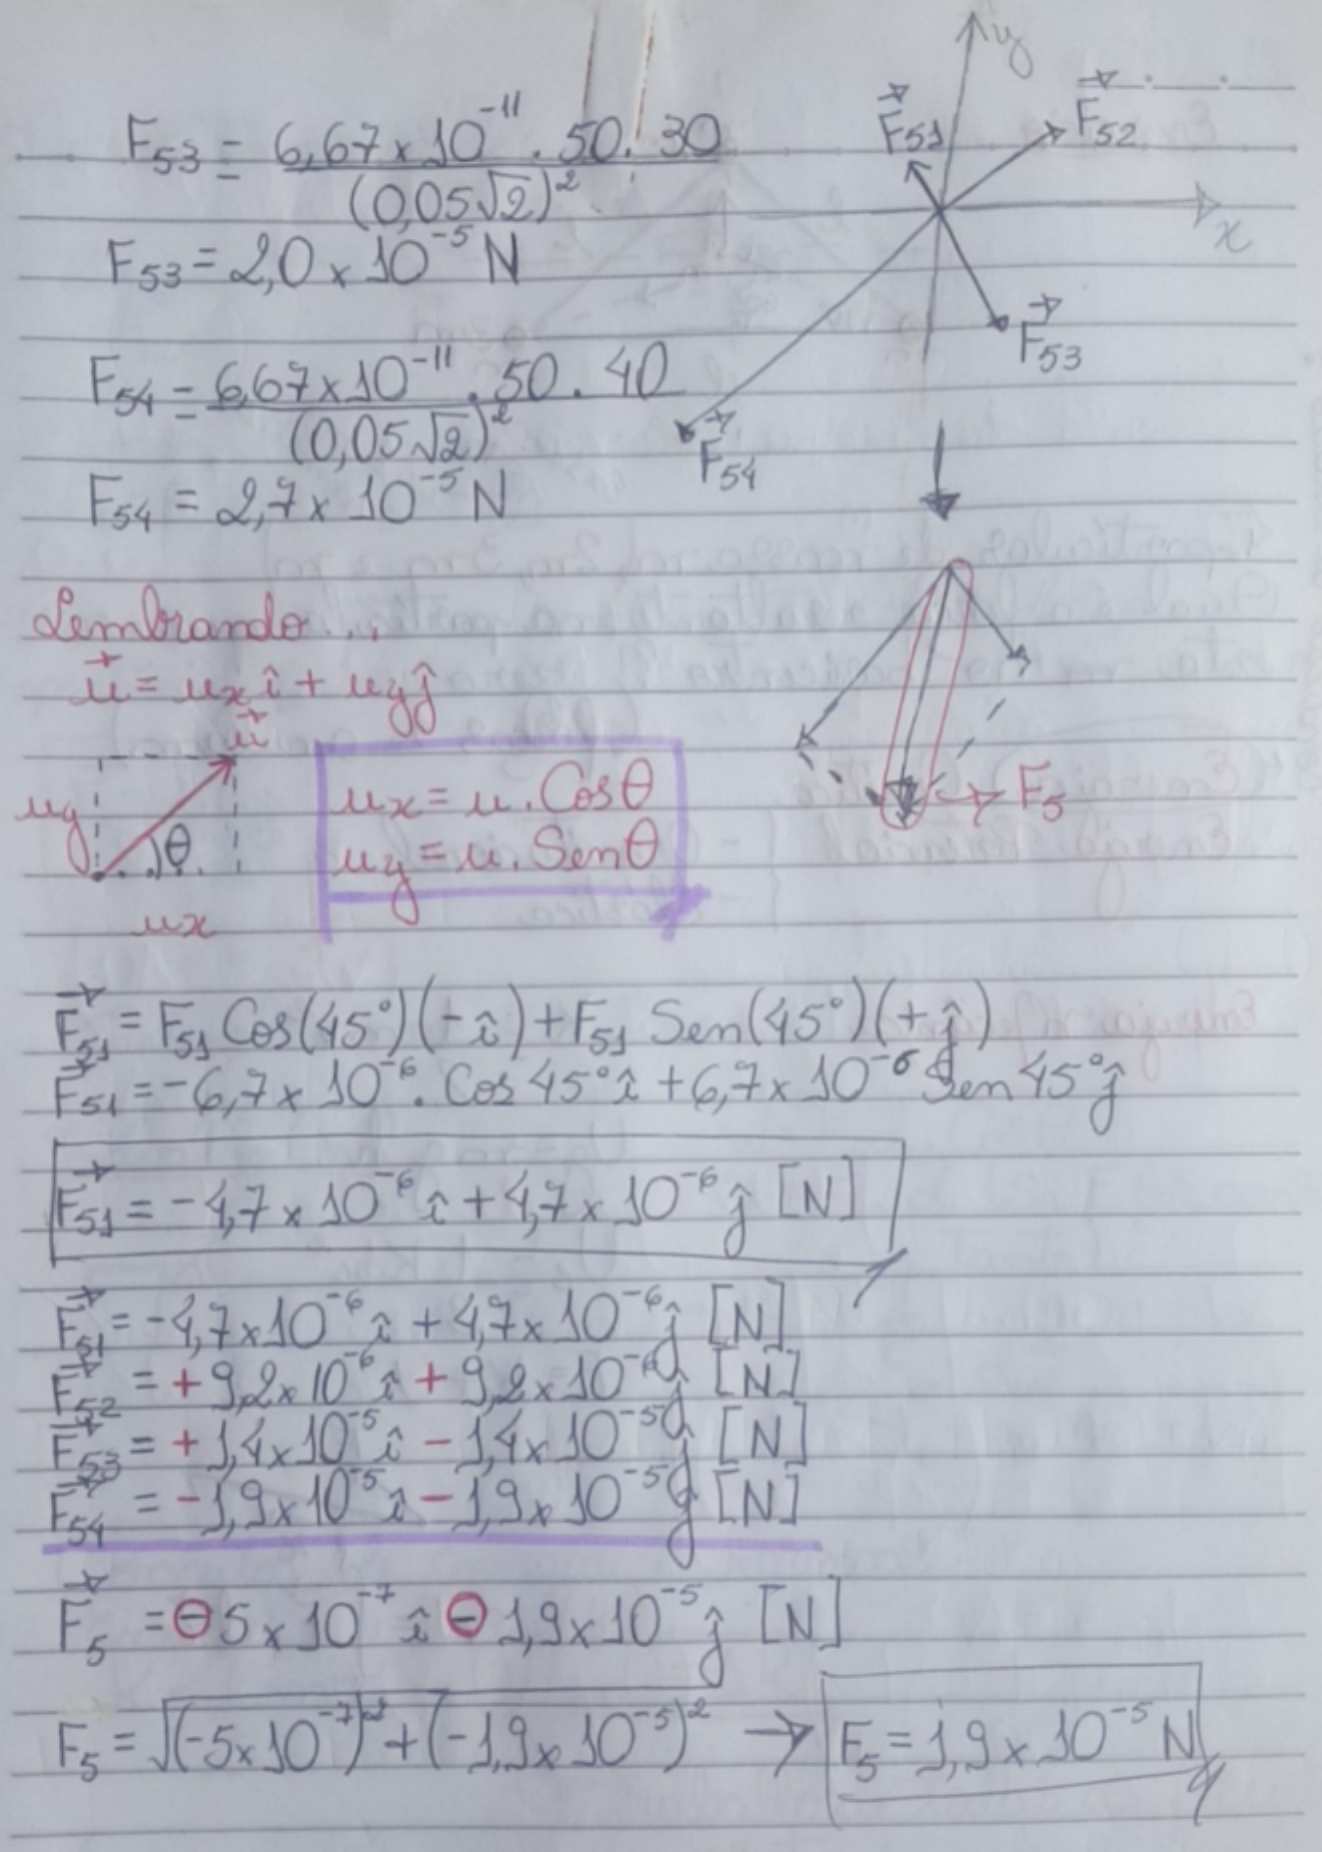 F53 = 6,67 x 10^-11 . 50 . 30
(0,05√2)^2
F53 = 2,0 x 10^-5 N
F54 = 6,67 x 10^-11 . 50 . 40
(0,05√2)^2
F54 = 2,7 x 10^-5 N
y
F⃗51
F⃗52
x
F⃗53
F⃗54
Lembrando...
u⃗ = ux î + uy ĵ
u⃗
uy
θ
ux
ux = u . Cos θ
uy = u . Sen θ
F5
F⃗51 = F51 Cos(45°)(-î) + F51 Sen(45°)(+ĵ)
F⃗51 = -6,7 x 10^-6 . Cos 45° î + 6,7 x 10^-6 Sen 45° ĵ
F⃗51 = -4,7 x 10^-6 î + 4,7 x 10^-6 ĵ [N]
F⃗51 = -4,7 x 10^-6 î + 4,7 x 10^-6 ĵ [N]
F⃗52 = + 9,2 x 10^-6 î + 9,2 x 10^-6 ĵ [N]
F⃗53 = + 1,4 x 10^-5 î - 1,4 x 10^-5 ĵ [N]
F⃗54 = - 1,9 x 10^-5 î - 1,9 x 10^-5 ĵ [N]
F⃗5 = ⊖ 5 x 10^-7 î ⊖ 1,9 x 10^-5 ĵ [N]
F5 = √(-5 x 10^-7)^2 + (-1,9 x 10^-5)^2 → F5 = 1,9 x 10^-5 N